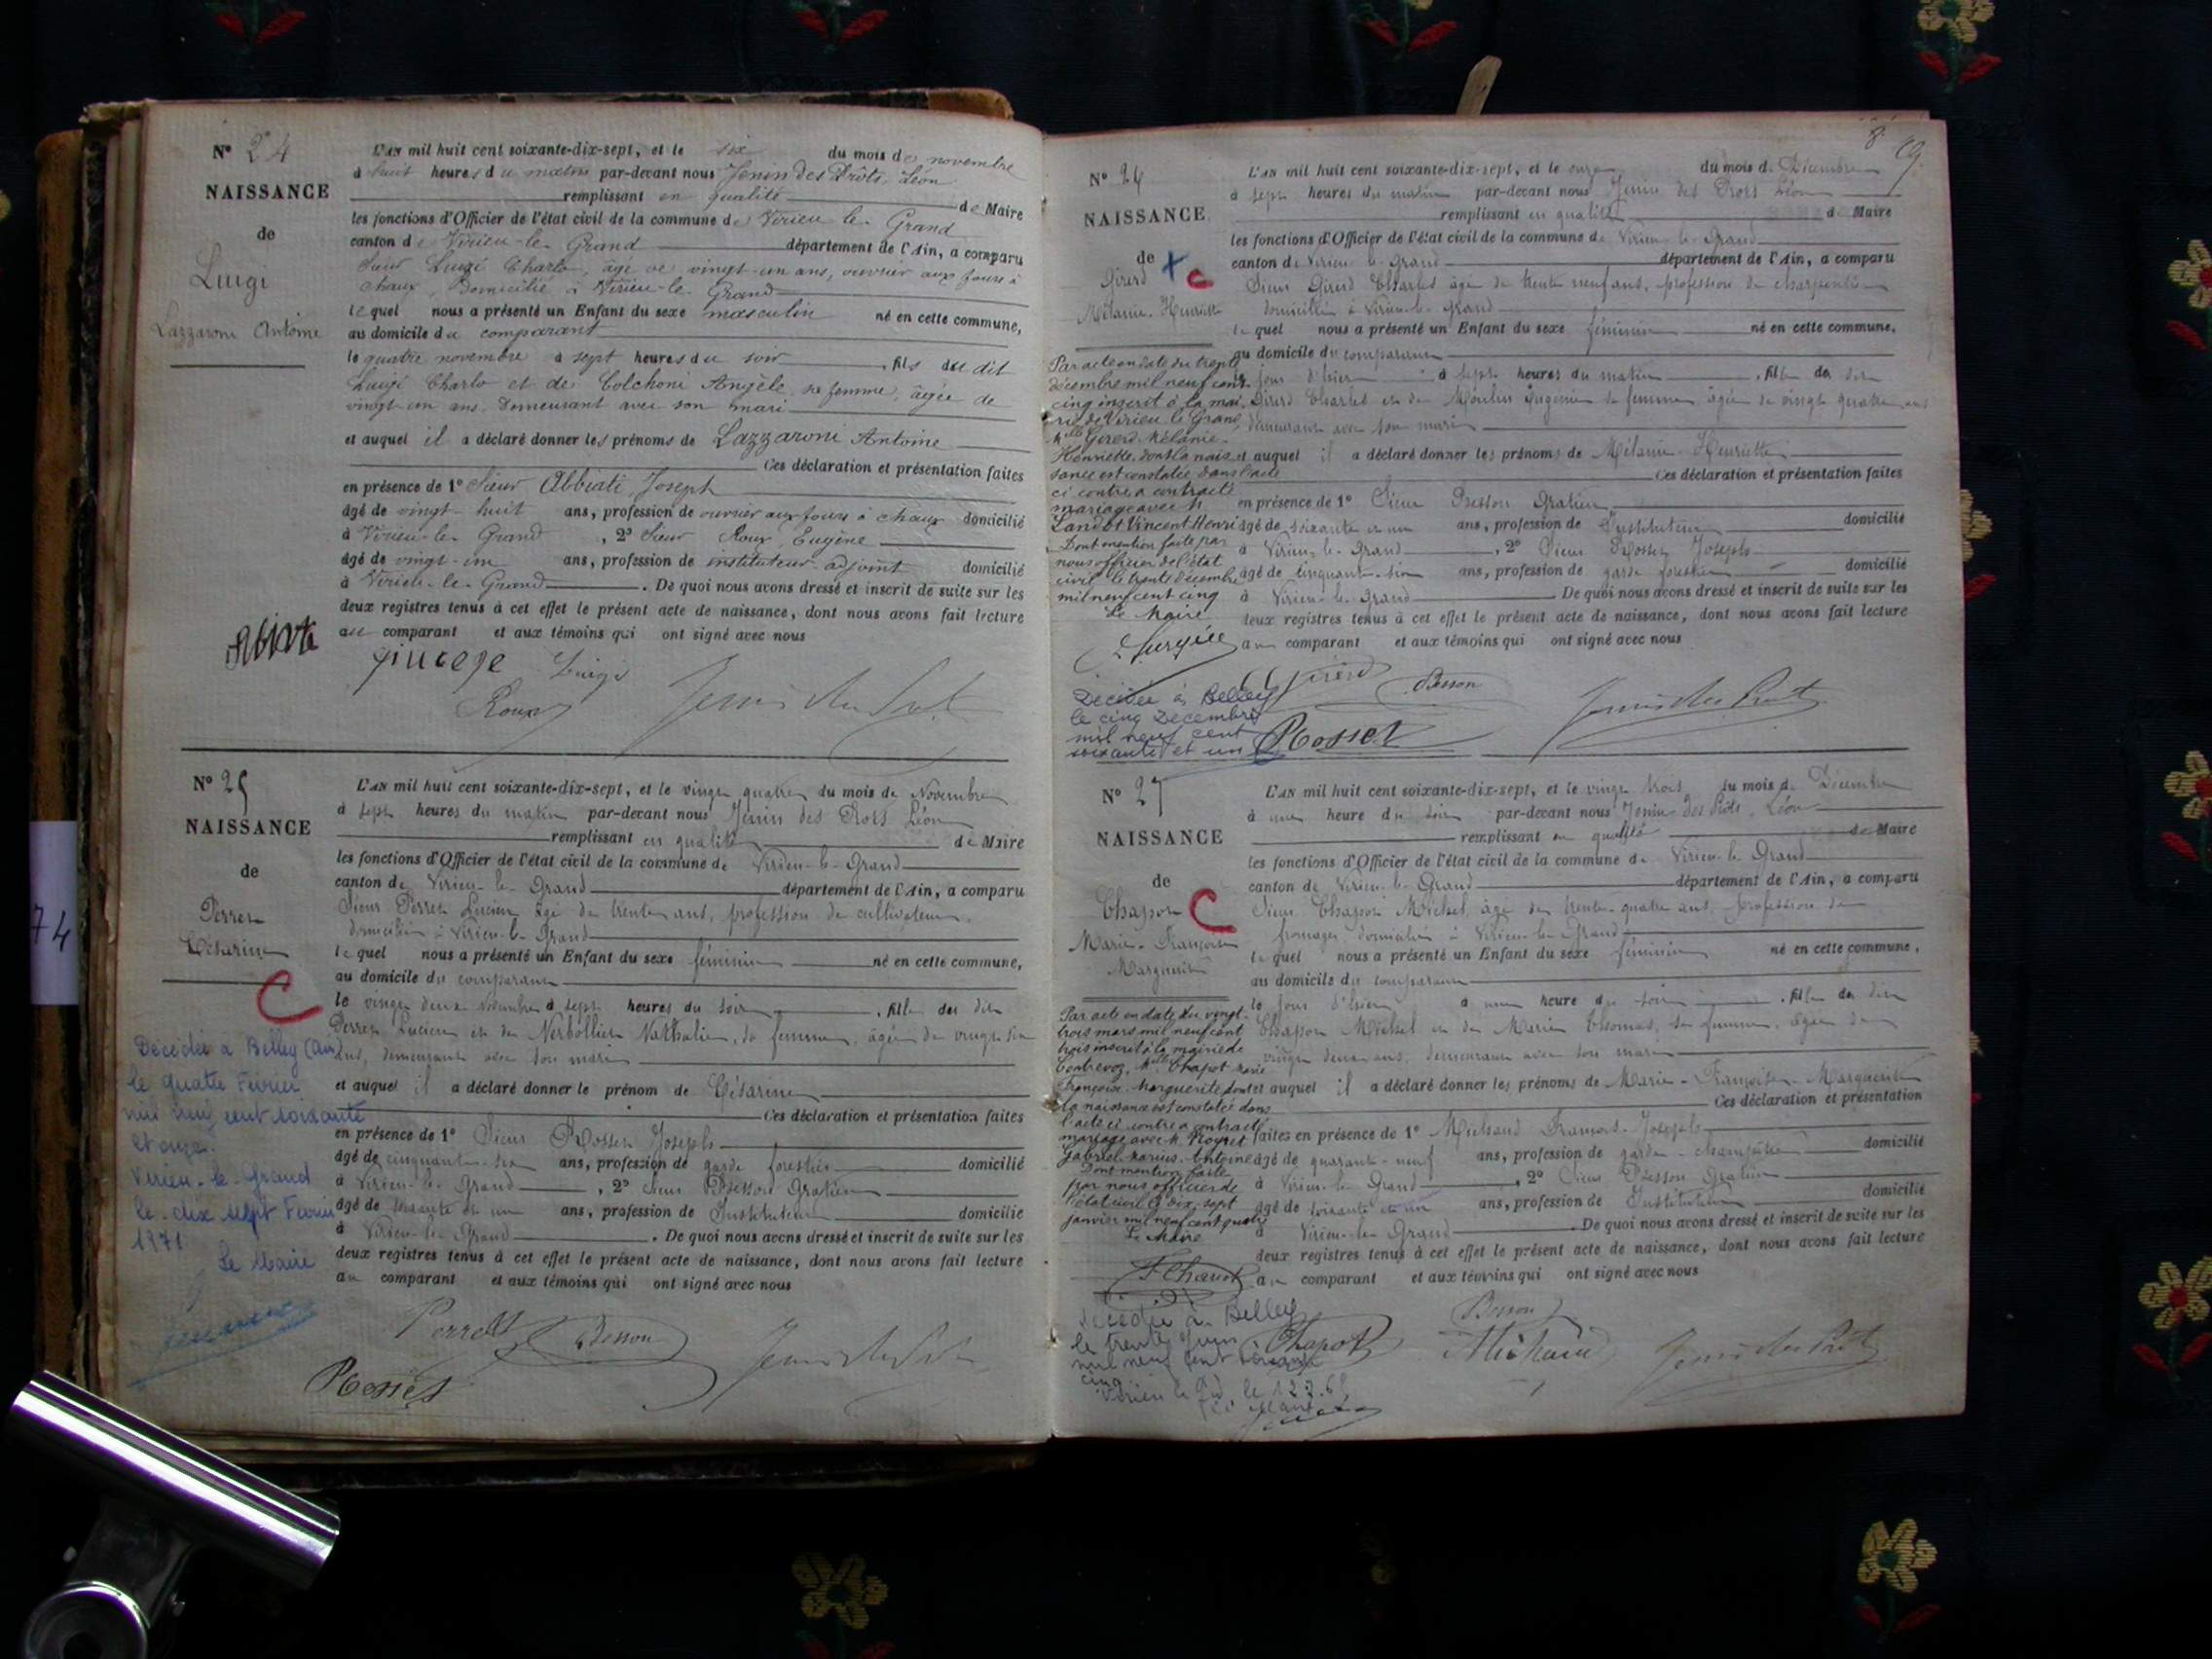 74
N° 24
NAISSANCE
de
Luigi
Lazzaroni Antoine
L'AN mil huit cent soixante-dix-sept, et le six du mois de novembre
à huit heures du matin par-devant nous Jenin des Prôts, Léon
remplissant en qualité de Maire
les fonctions d'Officier de l'état civil de la commune de Virieu le Grand
canton de Virieu-le-Grand département de l'Ain, a comparu
Sieur Luigi Charlo, âgé de vingt-un ans, ouvrier aux fours à
chaux, domicilié à Virieu-le-Grand
lequel nous a présenté un Enfant du sexe masculin né en cette commune,
au domicile du comparant
le quatre novembre à sept heures du soir, fils du dit
Luigi Charlo et de Colchoni Angèle sa femme, âgée de
vingt-un ans demeurant avec son mari
et auquel il a déclaré donner les prénoms de Lazzaroni Antoine
Ces déclaration et présentation faites
en présence de 1° Sieur Abbiati Joseph
âgé de vingt-huit ans, profession de ouvrier aux fours à chaux domicilié
à Virieu-le-Grand, 2° Sieur Roux Eugène
âgé de vingt-un ans, profession de instituteur adjoint domicilié
à Virieu-le-Grand. De quoi nous avons dressé et inscrit de suite sur les
deux registres tenus à cet effet le présent acte de naissance, dont nous avons fait lecture
au comparant et aux témoins qui ont signé avec nous
Luigi
Roux
N° 25
NAISSANCE
de
Perret
Césarine
C
L'AN mil huit cent soixante-dix-sept, et le vingt quatre du mois de Novembre
à sept heures du matin par-devant nous Jenin des Prots Léon
remplissant en qualité de Maire
les fonctions d'Officier de l'état civil de la commune de Virieu-le-Grand
canton de Virieu-le-Grand département de l'Ain, a comparu
Sieur Perret Lucien âgé de trente ans, profession de cultivateur,
domicilié à Virieu-le-Grand
lequel nous a présenté un Enfant du sexe féminin né en cette commune,
au domicile du comparant
le vingt deux Novembre à sept heures du soir, fille du dit
Perret Lucien et de Nerbollier Nathalie, sa femme, âgée de vingt six
ans, demeurant avec son mari
et auquel il a déclaré donner le prénom de Césarine
Ces déclaration et présentation faites
en présence de 1° Sieur Rosset Joseph
âgé de cinquante-six ans, profession de garde forestier domicilié
à Virieu-le-Grand, 2° Sieur Besson Gratien
âgé de soixante et un ans, profession de Instituteur domicilié
à Virieu-le-Grand. De quoi nous avons dressé et inscrit de suite sur les
deux registres tenus à cet effet le présent acte de naissance, dont nous avons fait lecture
au comparant et aux témoins qui ont signé avec nous
Décédée à Belley (Ain)
le quatre Février
mil neuf cent soixante
et onze.
Virieu-le-Grand
le dix sept Février
1971
Le Maire
Perret
Besson
Rosset
8
N° 26
NAISSANCE
de
Girerd
Mélanie-Henriette
C
L'AN mil huit cent soixante-dix-sept, et le onze du mois de Décembre
à sept heures du matin par-devant nous Jenin des Prots Léon
remplissant en qualité de Maire
les fonctions d'Officier de l'état civil de la commune de Virieu-le-Grand
canton de Virieu-le-Grand département de l'Ain, a comparu
Sieur Girerd Charles âgé de trente neuf ans, profession de charpentier
domicilié à Virieu-le-Grand
lequel nous a présenté un Enfant du sexe féminin né en cette commune,
au domicile du comparant
le jour d'hier à sept heures du matin, fille du dit
Girerd Charles et de Moulin Eugénie sa femme, âgée de vingt quatre ans
demeurant avec son mari
et auquel il a déclaré donner les prénoms de Mélanie-Henriette
Ces déclaration et présentation faites
en présence de 1° Sieur Besson Gratien
âgé de soixante et un ans, profession de Instituteur domicilié
à Virieu-le-Grand, 2° Sieur Rosset Joseph
âgé de cinquante-six ans, profession de garde forestier domicilié
à Virieu-le-Grand. De quoi nous avons dressé et inscrit de suite sur les
deux registres tenus à cet effet le présent acte de naissance, dont nous avons fait lecture
au comparant et aux témoins qui ont signé avec nous
Par acte en date du trente
décembre mil neuf cent
cinq inscrit à la mai-
rie de Virieu le Grand,
Mlle Girerd Mélanie
Henriette, dont la nais-
sance est constatée dans l'acte
ci contre a contracté
mariage avec M.
Landot Vincent Henri
Dont mention faite par
nous officier de l'état
civil le trente décembre
mil neuf cent cinq
Le Maire
Décédée à Belley
le cinq Décembre
mil neuf cent
soixante et un
Girerd
Besson
Rosset
N° 27
NAISSANCE
de
Chapot
Marie-Françoise
Marguerite
C
L'AN mil huit cent soixante-dix-sept, et le vingt trois du mois de Décembre
à une heure du soir par-devant nous Jenin des Prôts, Léon
remplissant en qualité de Maire
les fonctions d'Officier de l'état civil de la commune de Virieu-le-Grand
canton de Virieu-le-Grand département de l'Ain, a comparu
Sieur Chapot Michel, âgé de trente-quatre ans, profession de
fromager, domicilié à Virieu-le-Grand
lequel nous a présenté un Enfant du sexe féminin né en cette commune,
au domicile du comparant
le jour d'hier à une heure du soir, fille du dit
Chapot Michel et de Marie Thomas, sa femme, âgée de
vingt deux ans, demeurant avec son mari
et auquel il a déclaré donner les prénoms de Marie-Françoise-Marguerite
Ces déclaration et présentation
faites en présence de 1° Michaud François-Joseph
âgé de quarante-neuf ans, profession de garde-champêtre domicilié
à Virieu-le-Grand, 2° Sieur Besson Gratien
âgé de soixante et un ans, profession de Instituteur domicilié
à Virieu-le-Grand. De quoi nous avons dressé et inscrit de suite sur les
deux registres tenus à cet effet le présent acte de naissance, dont nous avons fait lecture
au comparant et aux témoins qui ont signé avec nous
Par acte en date du vingt-
trois mars mil neuf cent
trois inscrit à la mairie de
Contrevoz, Mlle Chapot Marie
Françoise Marguerite dont
la naissance est constatée dans
l'acte ci contre a contracté
mariage avec M. Royet
Gabriel-Marius-Antoine
Dont mention faite
par nous officier de
l'état civil le dix-sept
janvier mil neuf cent quatre
Le Maire
décédée à Belley
le trente Juin
mil neuf cent soixante
cinq
Virieu le Gd le 12.7.65
Le Maire
Chapot
Besson
Michaud